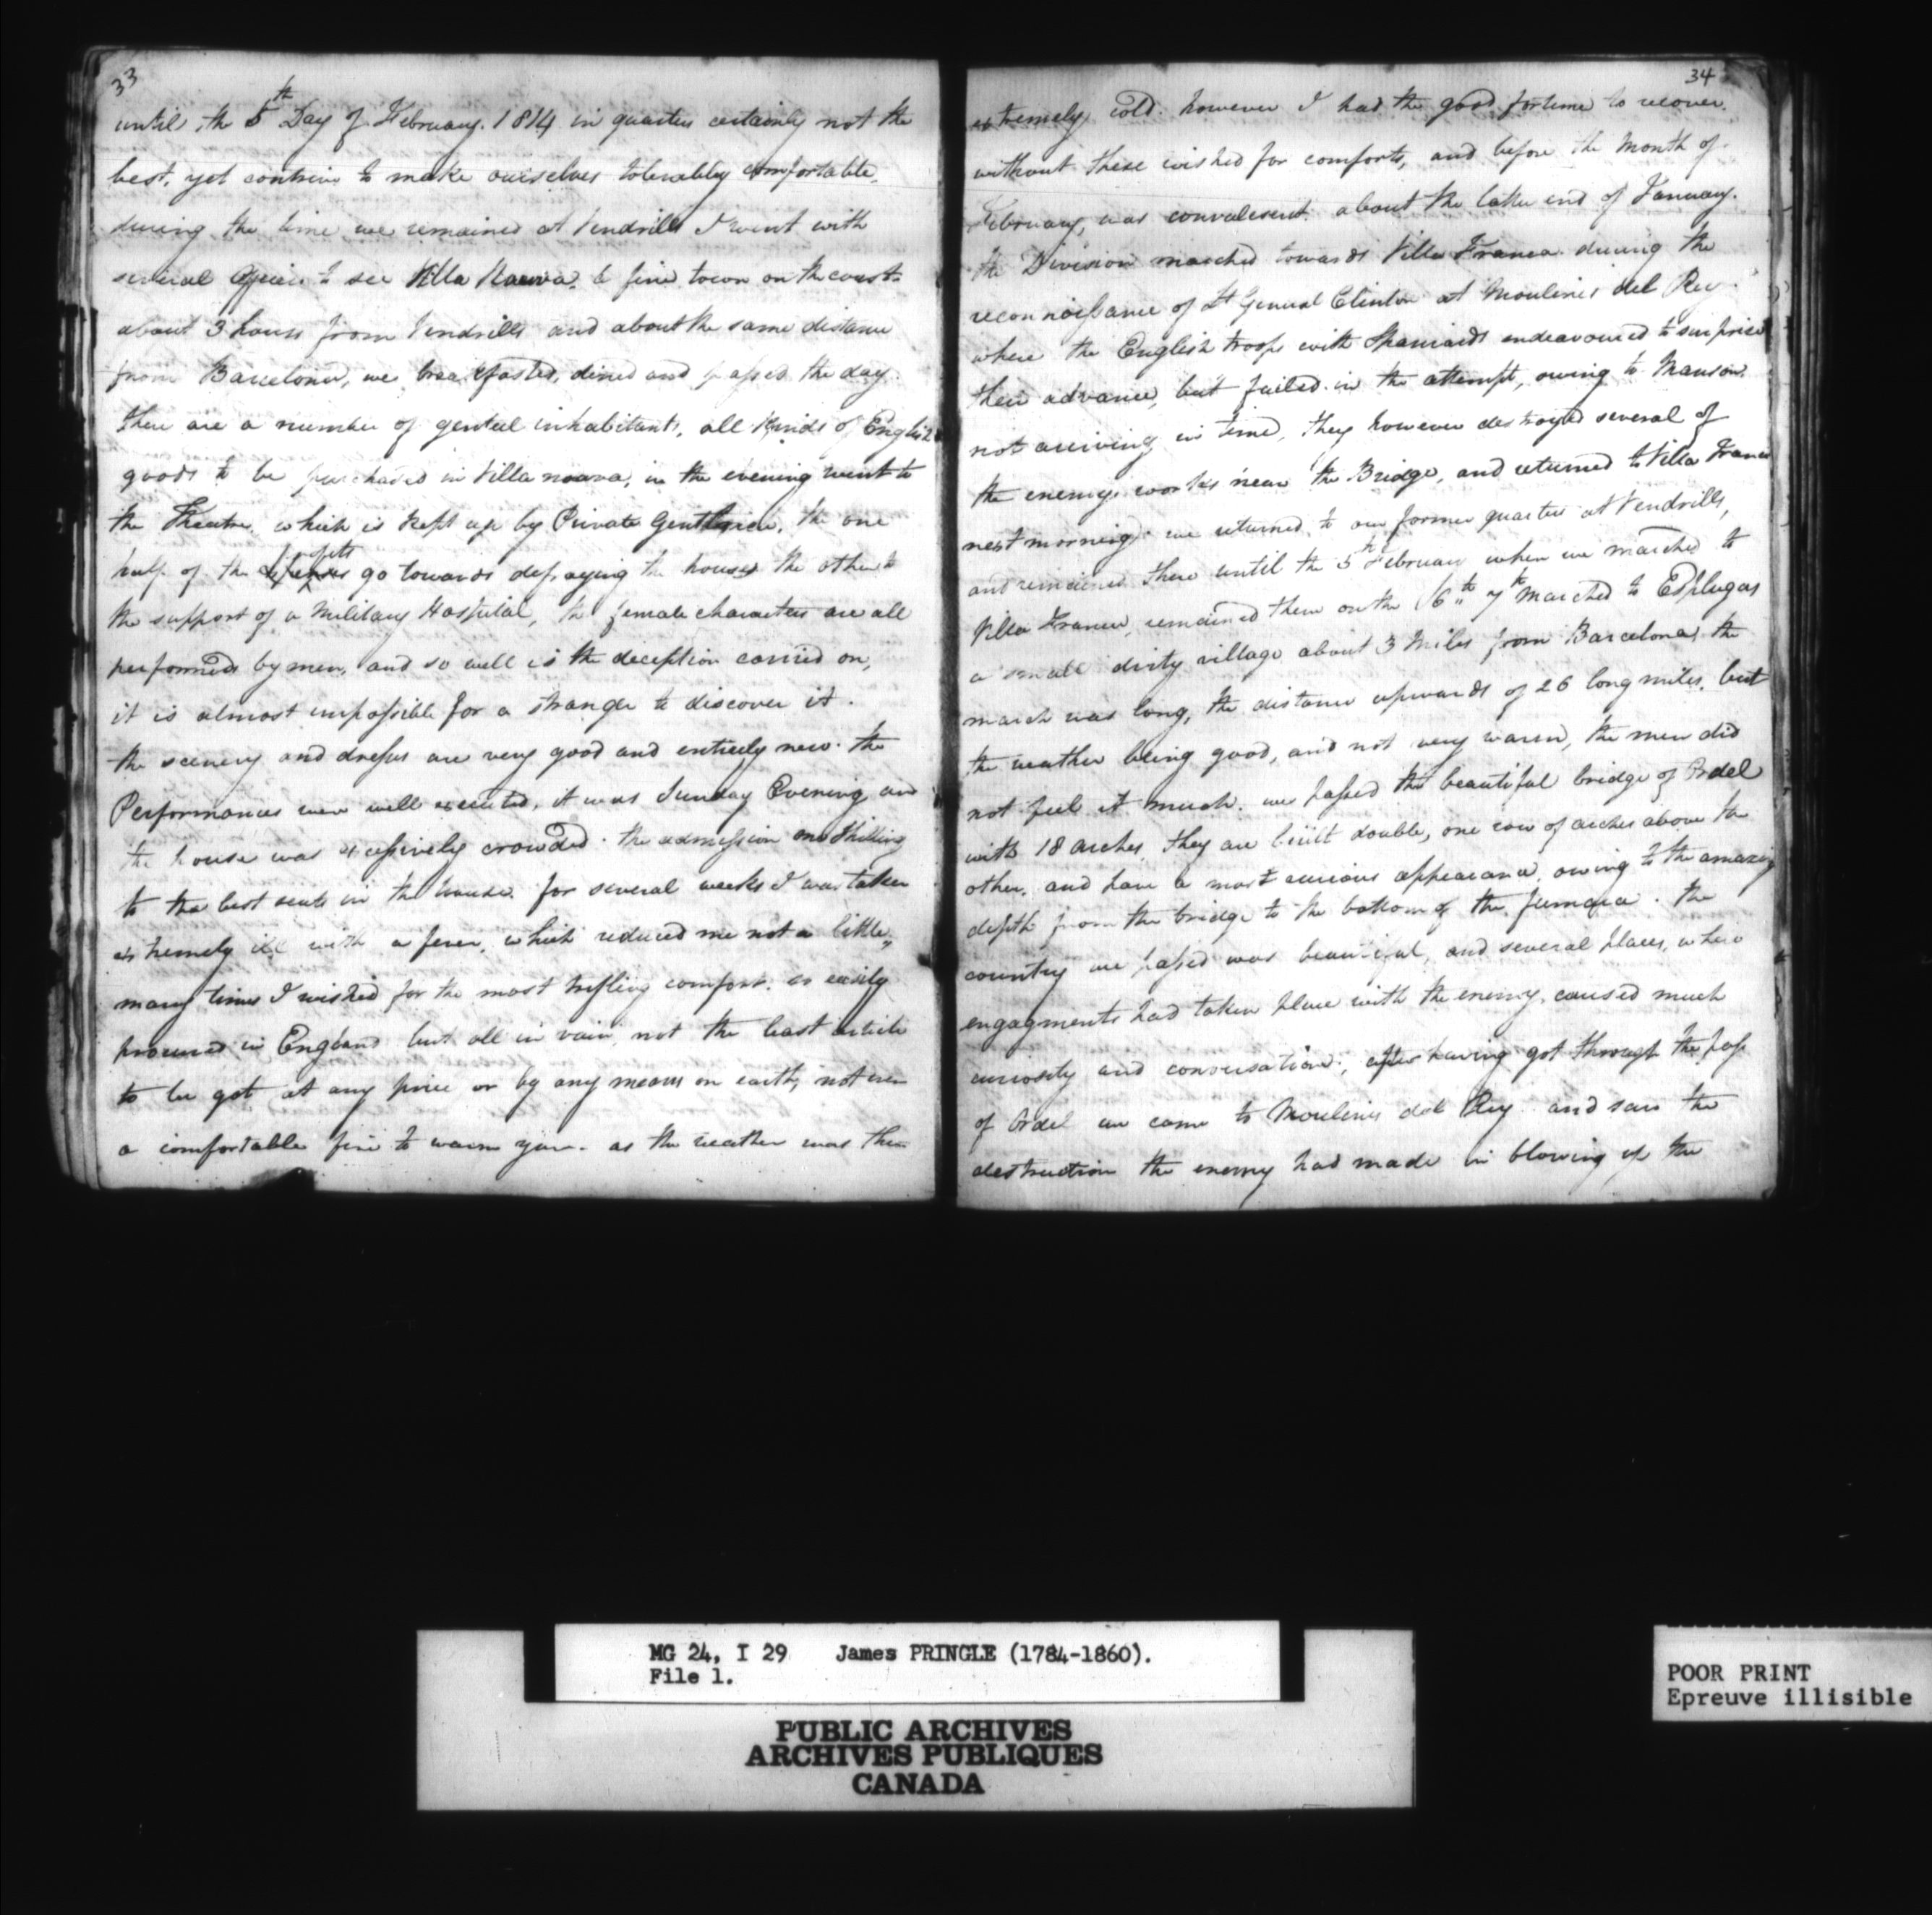 33
until the 5th Day of February. 1814 in quarters certainly not the
best, yet contrive to make ourselves tolerably comfortable,
during the time we remained at Vendrills I went with
several officers to see Villa Naova, a fine town on the coast
about 3 hours from Vendrills and about the same distance
from Barcelona, we breakfasted, dined and passed the day
there are a number of genteel inhabitants, all kinds of English
goods to be purchased in Villa noava, in the evening went to
the Theatre, which is kept up by Private Gentlemen, the one
half of the profits go towards defraying the houses the other to
the support of a Military Hospital, the female characters are all
performed by men, and so well is the deception carried on,
it is almost impossible for a stranger to discover it.
the scenery and dresses are very good and entirely new. the
Performances were well executed, it was Sunday Evening and
the house was excessively crowded. the admission one Shilling
to the best seats in the house. for several weeks I was taken
extremely ill with a fever, which reduced me not a little,
many times I wished for the most trifling comfort, so easily
procured in England but all in vain, not the least article
to be got at any price or by any means on earth, not even
a comfortable fire to warm you. as the weather was then
34
extremely cold. however I had the good fortune to recover.
without these wished for comforts, and before the Month of
February, was convalescent. about the latter end of January.
the Division marched towards Villa Franca. during the
reconnoissance of Lt General Clinton at Moulines del Rey.
where the English troops with Spaniards endeavoured to surprise
their advance, but failed in the attempt, owing to Manson
not arriving in time, they however destroyed several of
the enemys works near the Bridge, and returned to Villa Franca
next morning. we returned to our former quarters at Vendrills,
and remained there until the 5th February when we marched to
Villa Franca, remained there on the 6th 7th marched to Esplugas
a small dirty village about 3 Miles from Barcelona, the
march was long, the distance upwards of 26 long miles, but
the weather being good, and not very warm, the men did
not feel it much. we passed the beautiful bridge of Ordel
with 18 arches, they are built double, one row of arches above the
other, and have a most curious appearance, owing to the amazing
depth from the bridge to the bottom of the. the
country we passed was beautiful, and several places, where
engagments had taken place with the enemy, caused much
curiosity and conversation; after having got through the pass
of Ordel we came to Moulines del Rey and saw the
destruction the enemy had made in blowing up the
MG 24, I 29 James PRINGLE (1784-1860).
File 1.
PUBLIC ARCHIVES
ARCHIVES PUBLIQUES
CANADA
POOR PRINT
Epreuve illisible